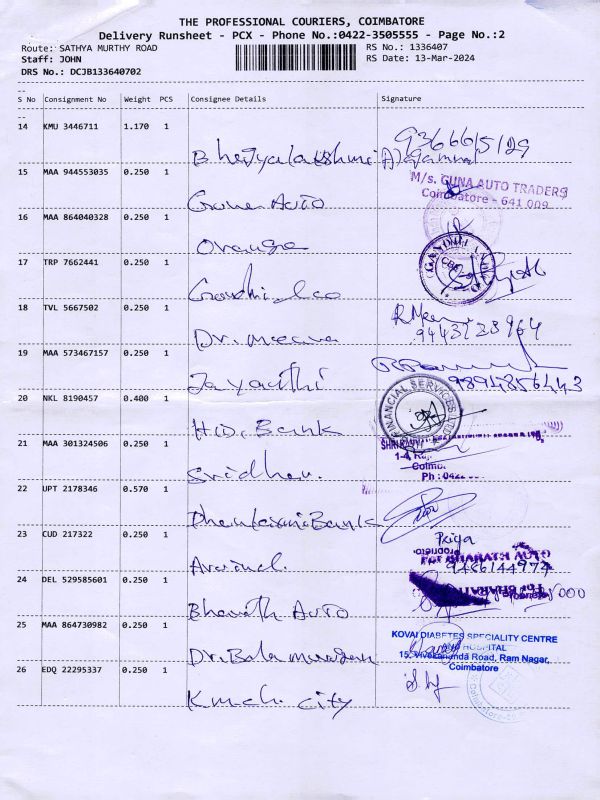 THE PROFESSIONAL COURIERS, COIMBATORE
Delivery Runsheet - PCX - Phone No.:0422-3505555 - Page No.:2
Route: SATHYA MURTHY ROAD
RS No.: 1336407
Staff: JOHN
RS Date: 13-Mar-2024
DRS No.: DCJB133640702
S No Consignment No Weight PCS Consignee Details Signature
14 KMU 3446711 1.170 1
Bhagyalakshmi
15 MAA 944553035 0.250 1
M/s. GUNA AUTO TRADERS
Coimbatore - 641 009
Guna Auto
16 MAA 864040328 0.250 1
Orange
17 TRP 7662441 0.250 1
Gandhi & co
18 TVL 5667502 0.250 1
R Meena
9443728964
Dr. Meena
19 MAA 573467157 0.250 1
Jayanthi
9894856443
20 NKL 8190457 0.400 1
FINANCIAL SERVICES LTD
Bank
21 MAA 301324506 0.250 1
Sridhar.
22 UPT 2178346 0.570 1
Bank
23 CUD 217322 0.250 1
Priya
9486144974
Aravind.
For BHARATH AUTO
24 DEL 529585601 0.250 1
Bharath Auto
25 MAA 864730982 0.250 1
KOVAI DIABETES SPECIALITY CENTRE
AND HOSPITAL
15, Vivekananda Road, Ram Nagar,
Coimbatore
Dr. Bala murugan
26 EDQ 22295337 0.250 1
Kmch city